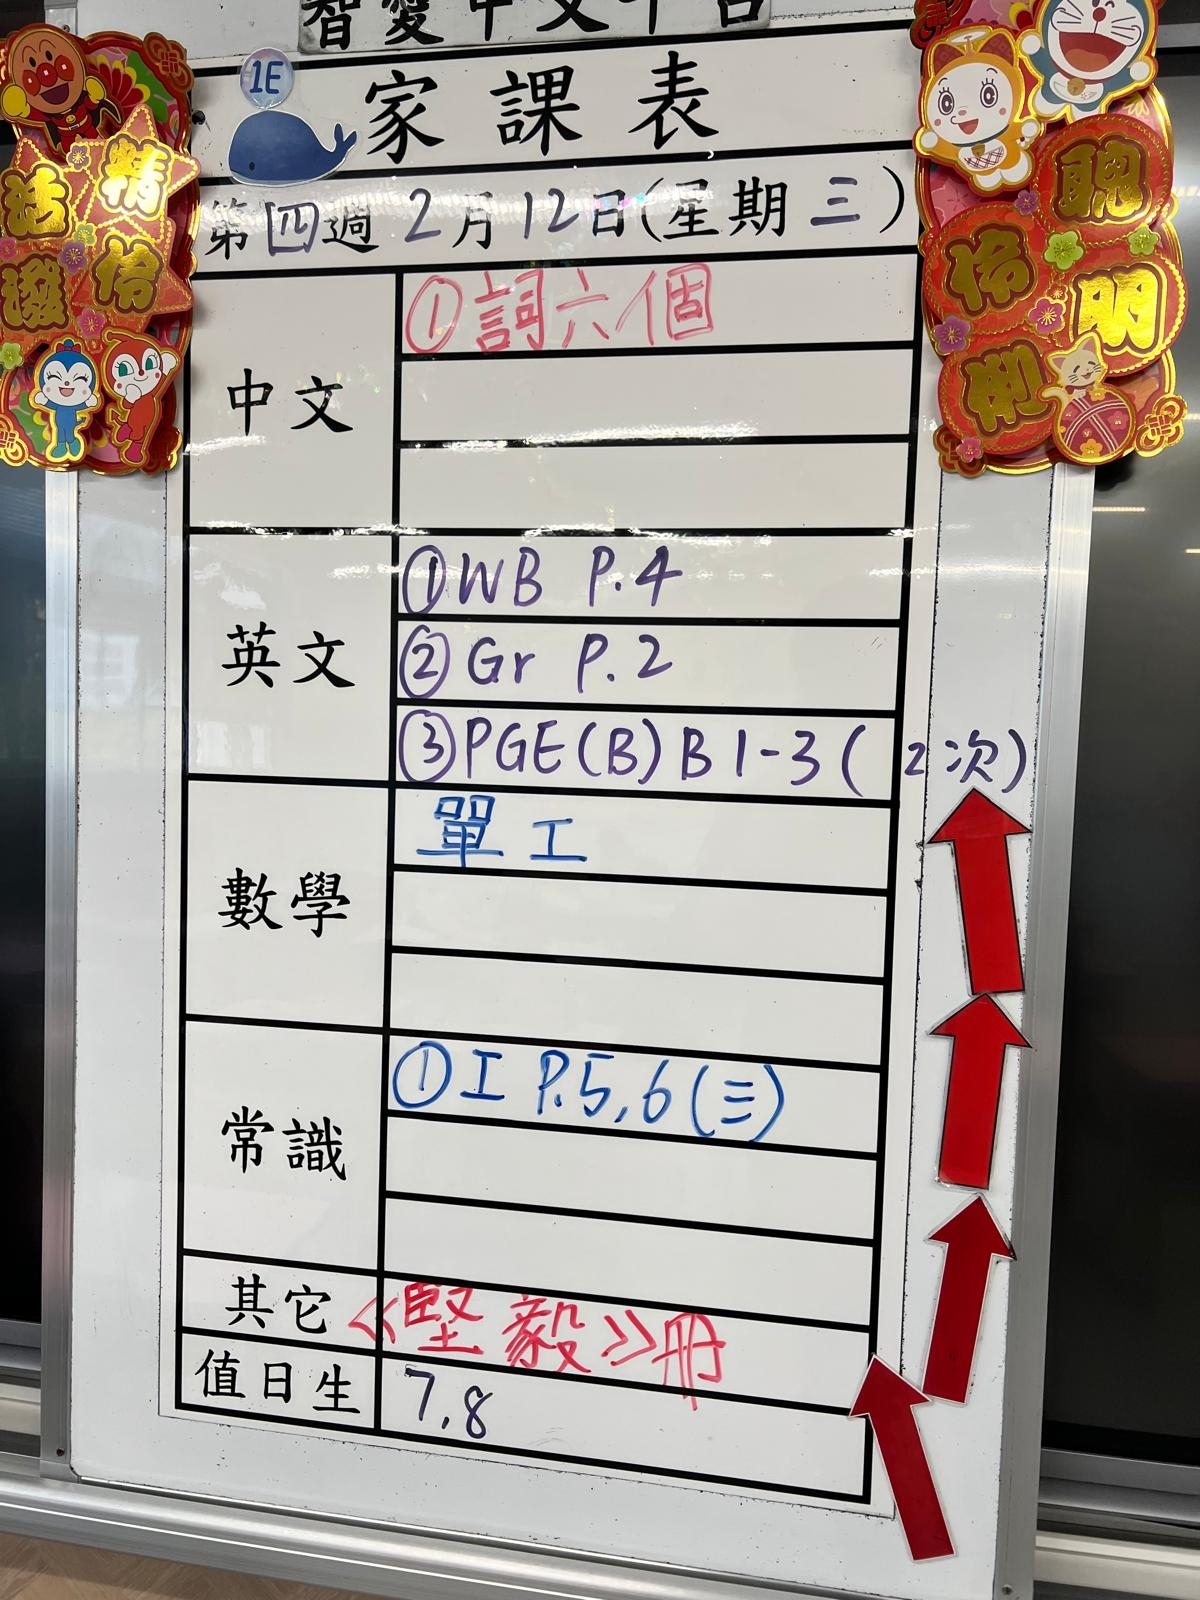 智愛中文平台
1E
家課表
第四週 2月12日(星期三)
中文
①詞六個
英文
①WB P.4
②Gr P.2
③PGE(B)B1-3(2次)
數學
單工
常識
①工 P.5,6(三)
其它
《堅毅》冊
值日生
7,8
活潑
精伶
聰明
伶俐